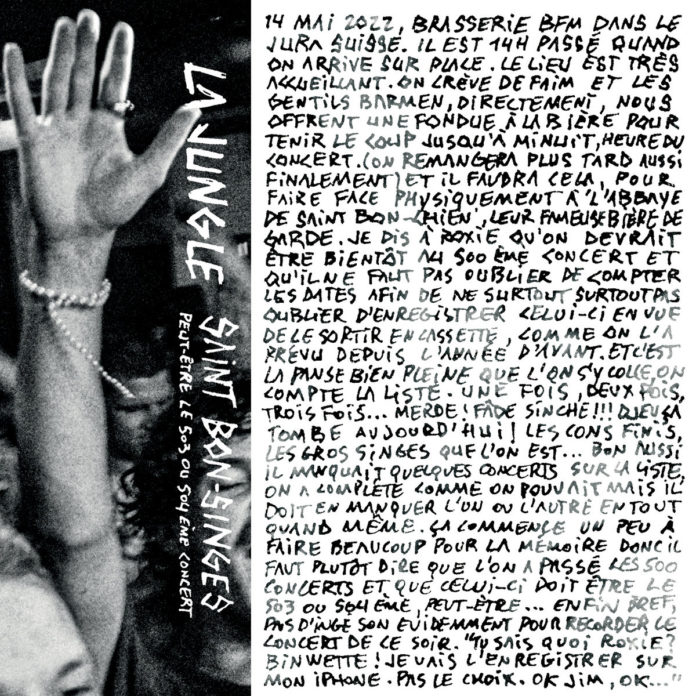 LA JUNGLE SAINT BON-SINGES
PEUT-ÊTRE LE 503 OU 504 EME CONCERT
14 MAI 2022, BRASSERIE BFM DANS LE
JURA SUISSE. IL EST 14H PASSÉ QUAND
ON ARRIVE SUR PLACE. LE LIEU EST TRÈS
ACCUEILLANT. ON CRÈVE DE FAIM ET LES
GENTILS BARMEN, DIRECTEMENT, NOUS
OFFRENT UNE FONDUE À LA BIÈRE POUR
TENIR LE COUP JUSQU'À MINUIT, HEURE DU
CONCERT. (ON REMANGERA PLUS TARD AUSSI
FINALEMENT) ET IL FAUDRA CELA, POUR
FAIRE FACE PHYSIQUEMENT À L'ABBAYE
DE SAINT BON-CHIEN, LEUR FAMEUSE BIÈRE DE
GARDE. JE DIS À ROXIE QU'ON DEVRAIT
ÊTRE BIENTÔT AU 500 ÈME CONCERT ET
QU'IL NE FAUT PAS OUBLIER DE COMPTER
LES DATES AFIN DE NE SURTOUT SURTOUT PAS
OUBLIER D'ENREGISTRER CELUI-CI EN VUE
DE LE SORTIR EN CASSETTE, COMME ON L'A
PRÉVU DEPUIS L'ANNÉE D'AVANT. ET C'EST
LA PANSE BIEN PLEINE QUE L'ON S'Y COLLE, ON
COMPTE LA LISTE. UNE FOIS, DEUX FOIS,
TROIS FOIS... MERDE! FADE SINCHE!!! DJEU ÇA
TOMBE AUJOURD'HUI! LES CONS FINIS,
LES GROS SINGES QUE L'ON EST... BON AUSSI
IL MANQUAIT QUELQUES CONCERTS SUR LA LISTE,
ON A COMPLÉTÉ COMME ON POUVAIT MAIS IL
DOIT EN MANQUER L'UN OU L'AUTRE EN TOUT
QUAND MÊME. ÇA COMMENCE UN PEU À
FAIRE BEAUCOUP POUR LA MÉMOIRE DONC IL
FAUT PLUTÔT DIRE QUE L'ON A PASSÉ LES 500
CONCERTS ET QUE CELUI-CI DOIT ÊTRE LE
503 OU 504 ÈME, PEUT-ÊTRE... ENFIN BREF,
PAS D'INGÉ SON EVIDEMMENT POUR RECORDER LE
CONCERT DE CE SOIR. "TU SAIS QUOI ROXIE?
BINWETTE! JE VAIS L'ENREGISTRER SUR
MON IPHONE. PAS LE CHOIX. OK JIM, OK..."